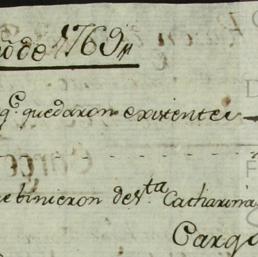 no de 1769,,
q.e quedaron existentes
se hinieron de S.ta Catharina
Cargo